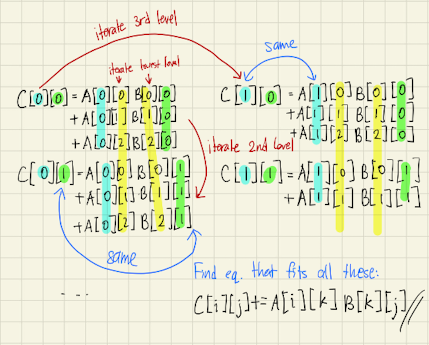 iterate 3rd level
iterate lowest level
C[0][0] = A[0][0] B[0][0]
+ A[0][1] B[1][0]
+ A[0][2] B[2][0]
C[0][1] = A[0][0] B[0][1]
+ A[0][1] B[1][1]
+ A[0][2] B[2][1]
same
...
iterate 2nd level
same
C[1][0] = A[1][0] B[0][0]
+ A[1][1] B[1][0]
+ A[1][2] B[2][0]
C[1][1] = A[1][0] B[0][1]
+ A[1][1] B[1][1]
Find eq. that fits all these:
C[i][j] += A[i][k] B[k][j] //